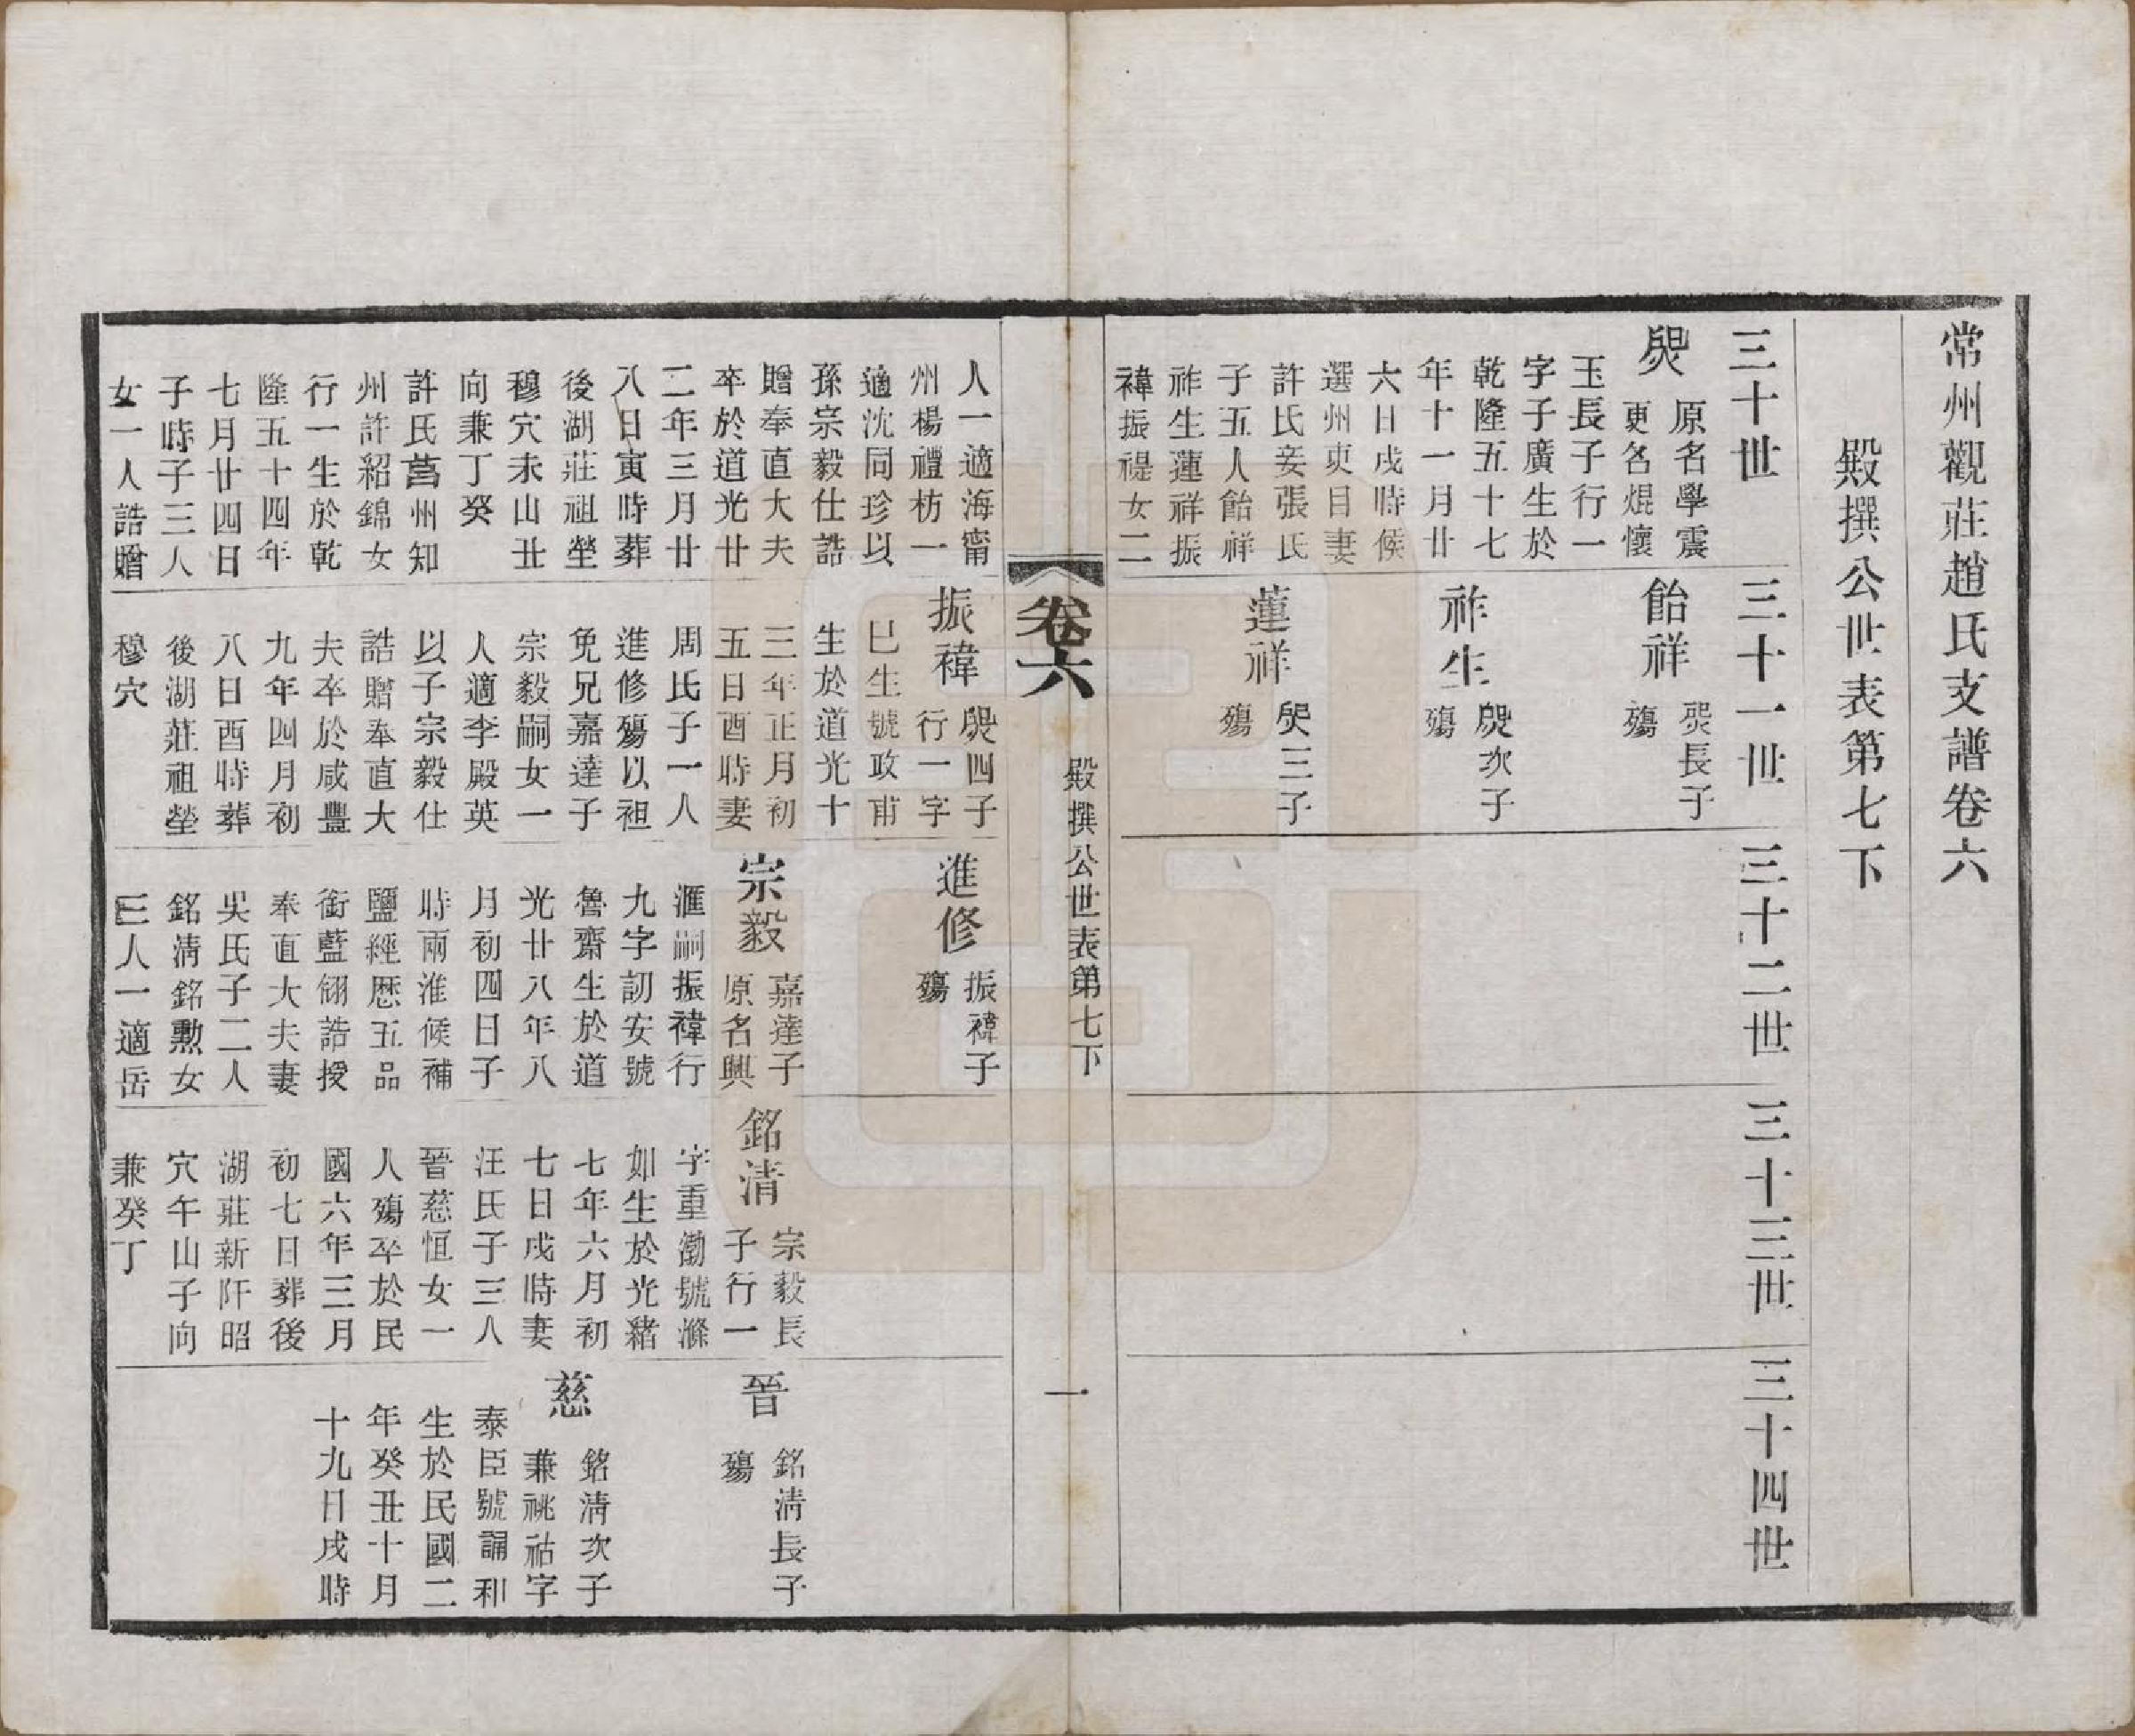 常州觀莊趙氏支譜卷六
殿撰公世表第七下
三十世
三十一世
三十二世
三十三世
三十四世
原名學震
更名焜懷
玉長子行一
字子廣生於
乾隆五十七
年十一月廿
六日戌時候
選州吏目妻
許氏妾張氏
子五人飴祥
祚生蓮祥振
禕振禔女二
飴祥
長子
殤
祚生
次子
殤
蓮祥
三子
殤
卷六
殿撰公世表第七下
一
人一適海甯
州楊禮枋一
適沈同珍以
孫宗毅仕誥
贈奉直大夫
卒於道光廿
二年三月廿
八日寅時葬
後湖莊祖塋
穆穴未山丑
向兼丁癸
許氏莒州知
州許紹錦女
行一生於乾
隆五十四年
七月廿四日
子時子三人
女一人誥贈
振禕
四子
行一字
巳生號政甫
生於道光十
三年正月初
五日酉時妻
周氏子一人
進修殤以祖
免兄嘉達子
宗毅嗣女一
人適李殿英
以子宗毅仕
誥贈奉直大
夫卒於咸豐
九年四月初
八日酉時葬
後湖莊祖塋
穆穴
進修
振禕子
殤
宗毅
嘉達子
原名興
滙嗣振禕行
九字訒安號
魯齋生於道
光廿八年八
月初四日子
時兩淮候補
鹽經歷五品
銜藍翎誥授
奉直大夫妻
吳氏子二人
銘清銘勲女
三人一適岳
銘清
宗毅長
子行一
字重渤號滌
如生於光緒
七年六月初
七日戌時妻
汪氏子三人
晉慈恒女一
人殤卒於民
國六年三月
初七日葬後
湖莊新阡昭
穴午山子向
兼癸丁
晉
銘清長子
殤
慈
銘清次子
兼祧祜字
泰臣號誦和
生於民國二
年癸丑十月
十九日戌時